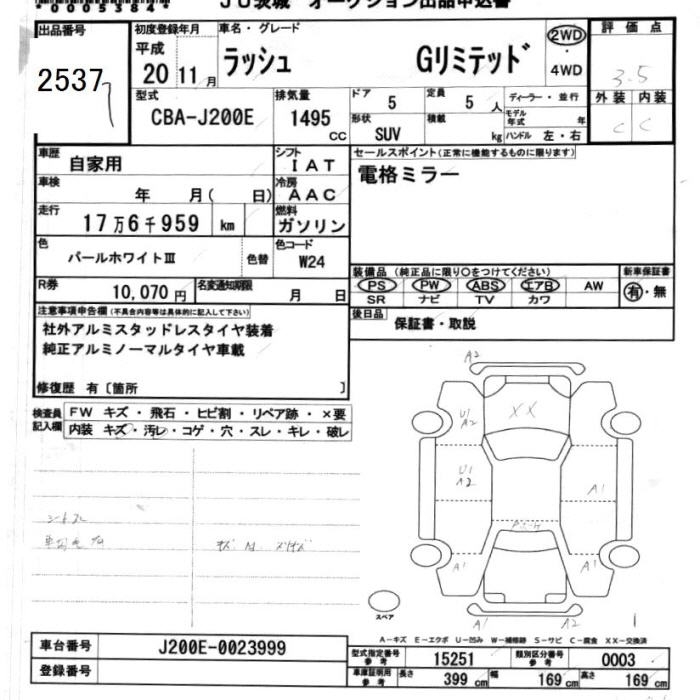 *0005384*
JU茨城 オークション出品申込書
出品番号 2537
初度登録年月 平成 20 11月
車名・グレード ラッシュ Gリミテッド
2WD
4WD
評価点 3.5
外装 C 内装 C
型式 CBA-J200E
排気量 1495 cc
ドア 5
定員 5 人
形状 SUV
積載 kg
ディーラー・並行
モデル年式 年
ハンドル 左・右
車歴 自家用
シフト IAT
車検 年 月( 日)
冷房 AAC
走行 17万6千959 km
燃料 ガソリン
色 パールホワイトⅢ
色替
色コード W24
R券 10,070円
名変通知期限 月 日
セールスポイント(正常に機能するものに限ります)
電格ミラー
装備品 (純正品に限り○をつけてください)
新車保証書
PS PW ABS エアB AW
有・無
SR ナビ TV カワ
後日品 保証書・取説
注意事項申告欄(不具合内容等は具体的に記入して下さい)
社外アルミスタッドレスタイヤ装着
純正アルミノーマルタイヤ車載
修復歴 有〔箇所 〕
検査員記入欄
FW キズ・飛石・ヒビ割・リペア跡・×要
内装 キズ・汚レ・コゲ・穴・スレ・キレ・破レ
A2
U1
A2
XX
U1
A2
A1
A1
A1
A1
A2
スペア
A-キズ E-エクボ U-凹み W-補修跡 S-サビ C-腐食 XX-交換済
車台番号 J200E-0023999
登録番号
型式指定番号 参考 15251
類別区分番号 参考 0003
車庫証明用 参考 長さ 399 cm 幅 169 cm 高さ 169 cm